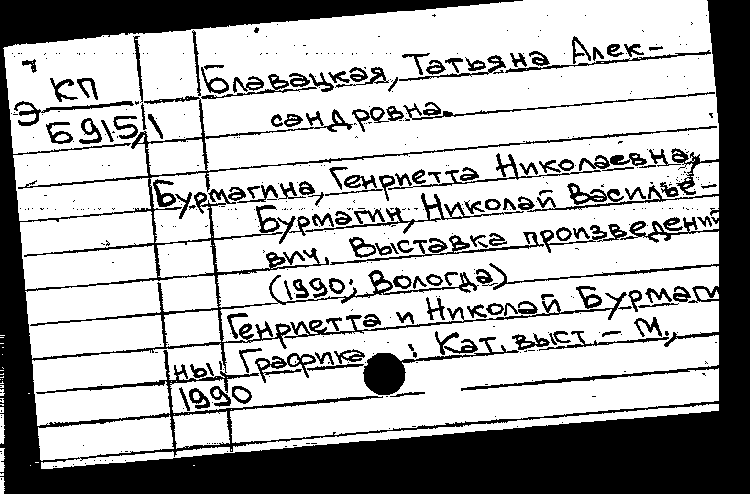 КП
Э
Б915,1
Блавацкая, Татьяна Алек-
сандровна.
Бурмагина, Генриетта Николаевна,
Бурмагин, Николай Василье-
вич. Выставка произведений
(1990; Вологда)
Генриетта и Николай Бурмаги
ны. Графика : Кат. выст. – М.,
1990